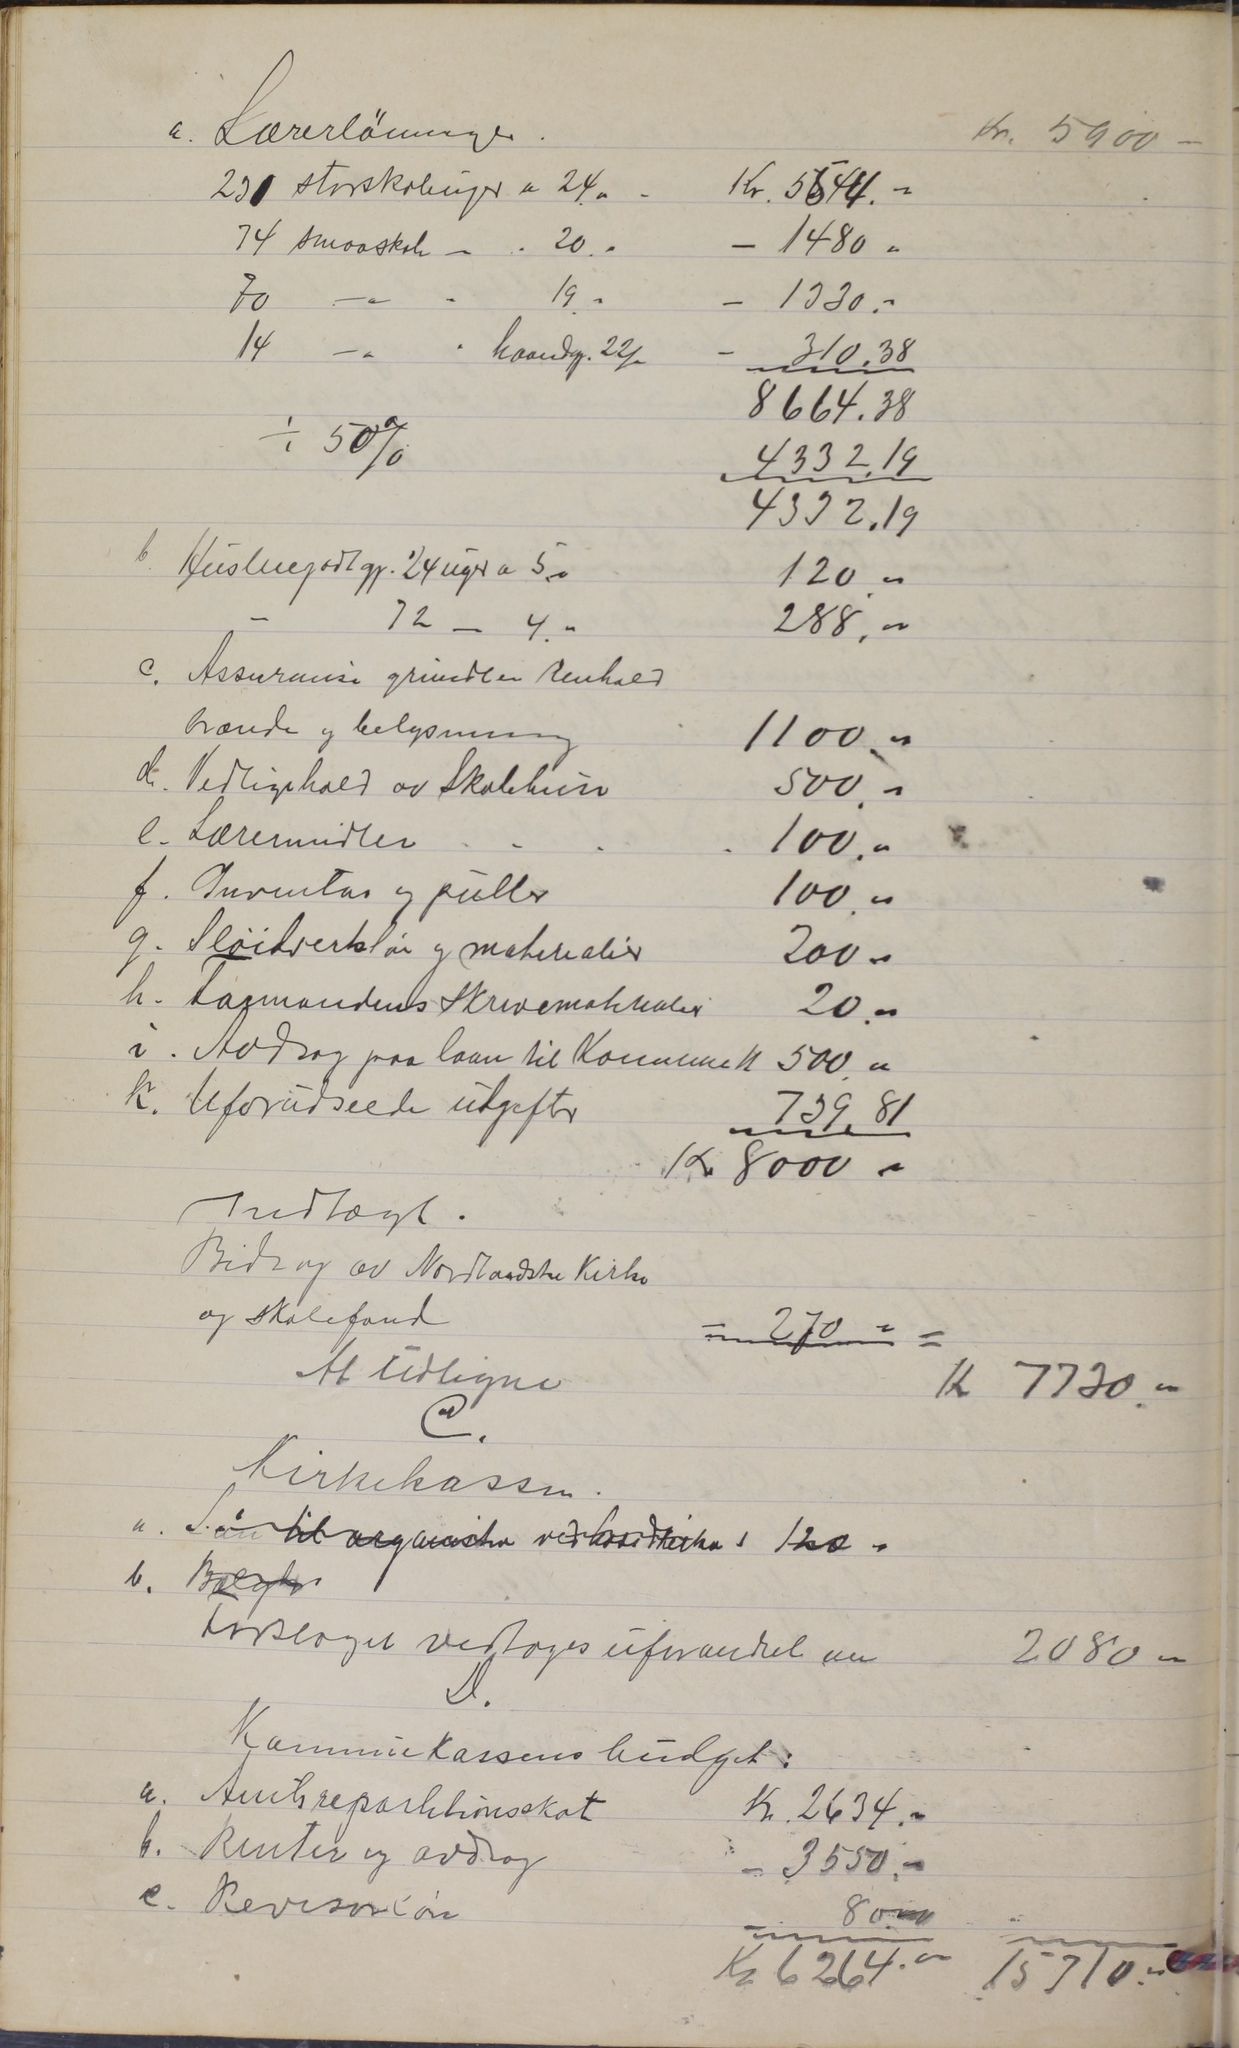 Kr. 5900 -
a. Lærerlönninger.
231 storskoleuger a 24.- - Kr. 5544.-
74 smaaskole - - 20.- - 1480 -
70 -"- - 19.- - 1330.-
14 -"- " haandgj. 22/- - 310.38
8664.38
÷ 50% 4332.19
4332.19
b. Huslæregodtgj. 24 uger a 5.- 120.-
- 72 - 4.- 288.-
c. Assuranse grundleie Renhold
brænde og belysning 1100.-
d. Vedligehold av Skolehuse 500.-
e. Læremidler - - - - 100.-
f. Inventar og pulter 100.-
g. Slöidverktöi og materialier 200 -
h. Formandens Skrivematerialier 20.-
i. Avdrag paa laan til Kommunek 500.-
k. Uforudseede utgifter 739.81
Kr 8000 -
Indtægt.
Bidrag av Nordlandske Kirke
og skolefond = 270 - =
At Udligne K 7730.-
C.
Kirkekassen.
a. Lön til organister ved hovedkirken 120 -
b. Bælgtr
Forslaget vedtoges uforandret 2080 -
D.
Kommunekassens budget:
a. Amtsrepartitionsskat Kr. 2634.-
b. Renter og avdrag - 3550.-
c. Revisorlön - 80.00
Kr 6264.- 15710.-